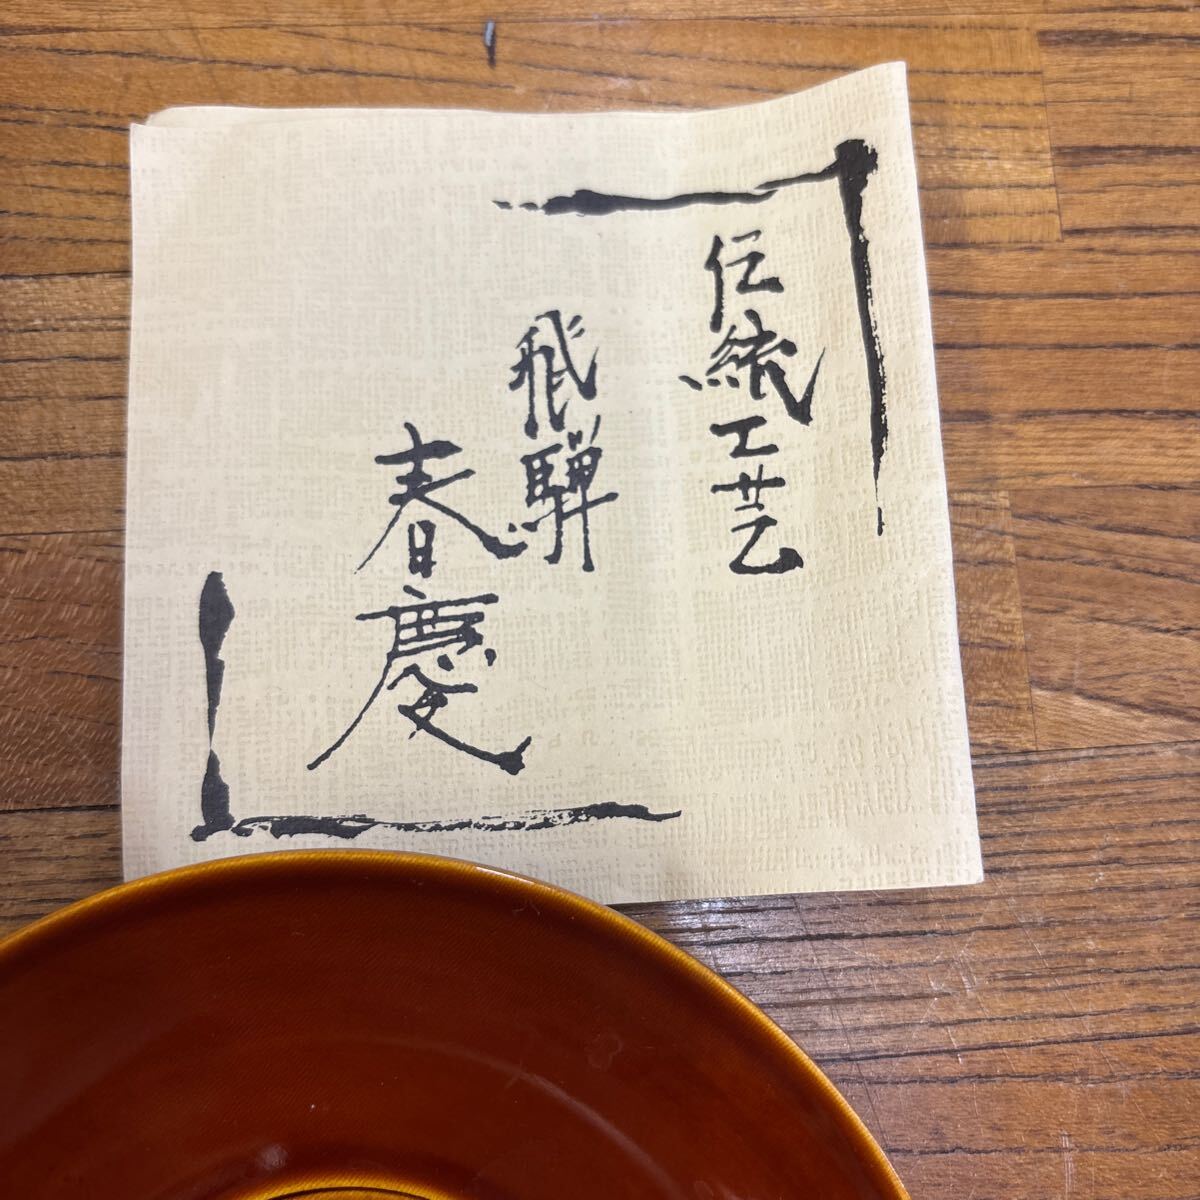 伝統工芸
飛騨
春慶